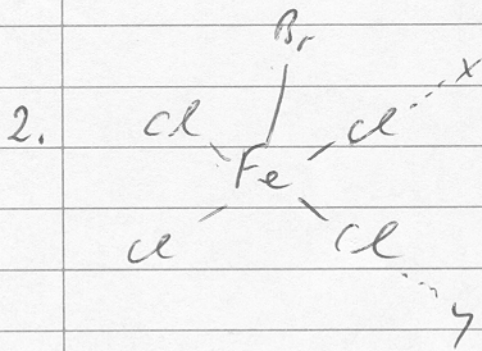 Br
2. Cl Cl X
Fe
Cl Cl
y